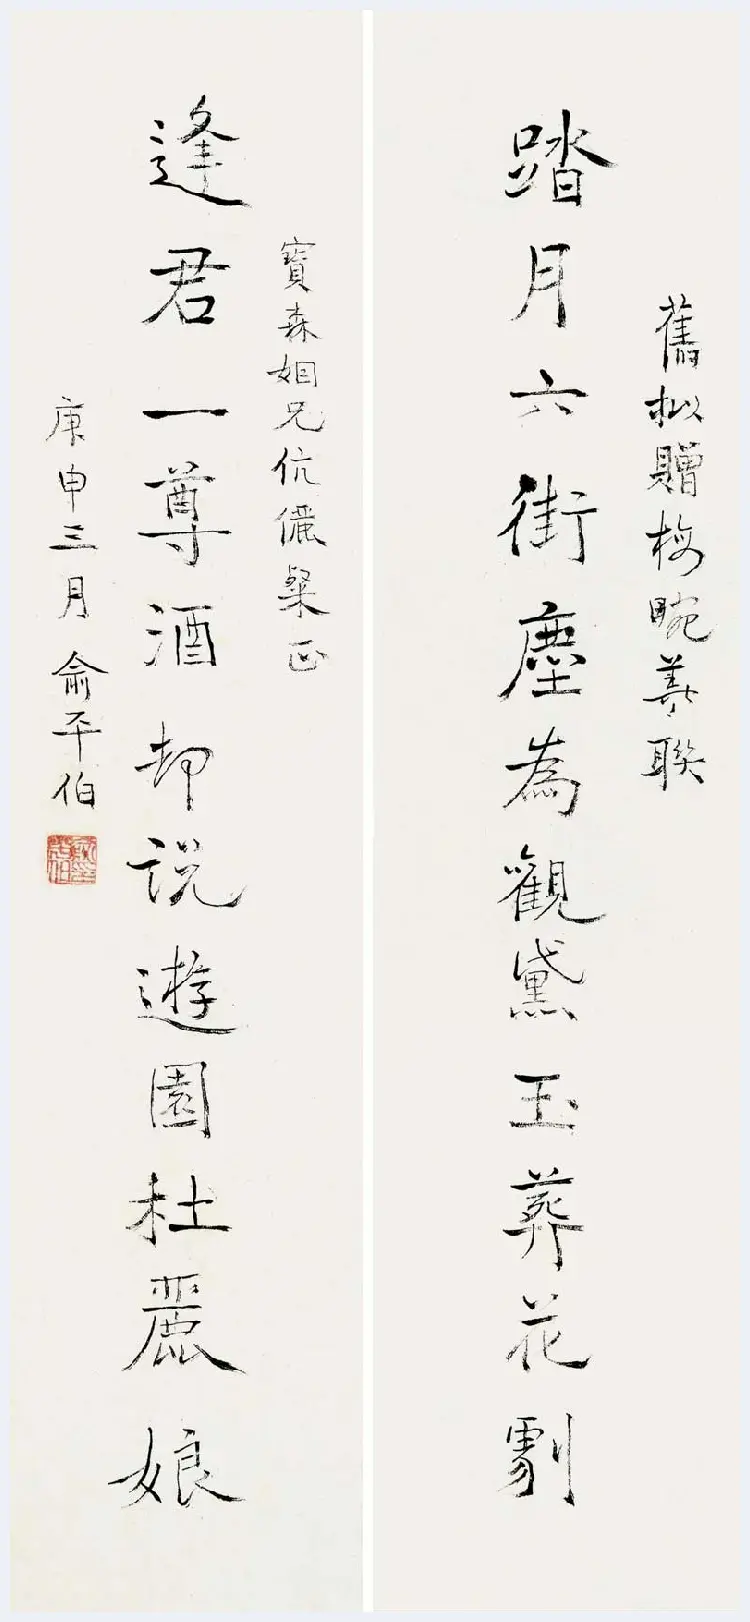 舊拟贈梅畹華聯
踏月六街塵為觀黛玉葬花劇
逢君一尊酒却説遊園杜麗娘
寶森姻兄伉儷粲正
庚申三月俞平伯
俞平伯